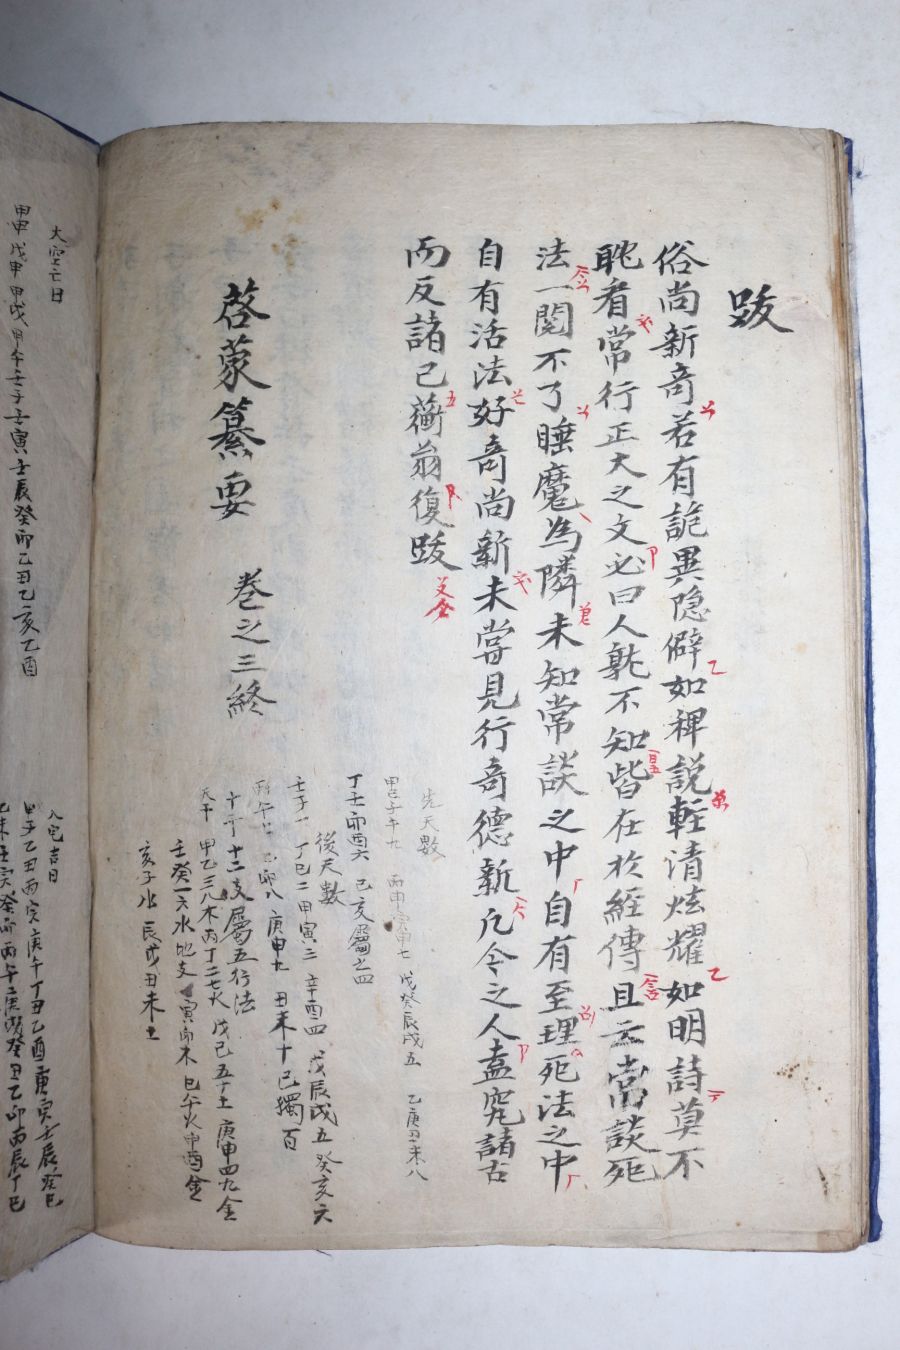 跋
俗尚新奇若有詭異隱僻如稗説輊清炫耀如明詩莫不
耽看常行正大之文必曰人孰不知皆在於經傳且云常談死
法一閱不了睡魔為隣未知常談之中自有至理死法之中
自有活法好奇尚新未嘗見行奇德新凡今之人盍究諸古
而反諸己蘅翁復跋
啓蒙纂要　卷之三終
先天數
甲己子午九　丙申寅申七　戊癸辰戌五　乙庚丑未八
丁壬卯酉六　己亥屬之四
後天數
壬子一　丁巳二　甲寅三　辛酉四　戊辰戌五　癸亥六
丙午七　乙卯八　庚申九　丑未十　己獨百
十干十二支屬五行法
天干　甲乙三八木　丙丁二七火　戊己五十土　庚申四九金
壬癸一六水　地支　寅卯木　巳午火　申酉金
亥子水　辰戌丑未土
大空亡日
甲申戊申甲戌甲午壬子壬寅壬辰癸卯乙丑乙亥乙酉
入宅吉日
甲子乙丑丙寅庚午丁丑乙酉庚寅壬辰癸巳
乙未壬寅癸卯丙午庚戌癸丑乙卯丙辰丁巳